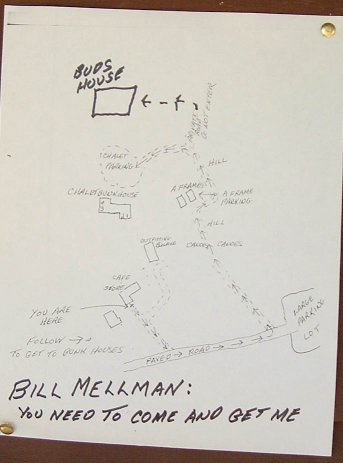 BUDS
HOUSE
PRIVATE
ROAD
DO NOT ENTER
CHALET
PARKING
HILL
CHALET BUNKHOUSE
A FRAMES
A FRAME
PARKING
HILL
CANOES CANOES
CAFE
STORE
YOU ARE
HERE
FOLLOW
TO GET TO BUNK HOUSES
PAVED ROAD
LARGE
PARKING
LOT
BILL MELLMAN:
YOU NEED TO COME AND GET ME